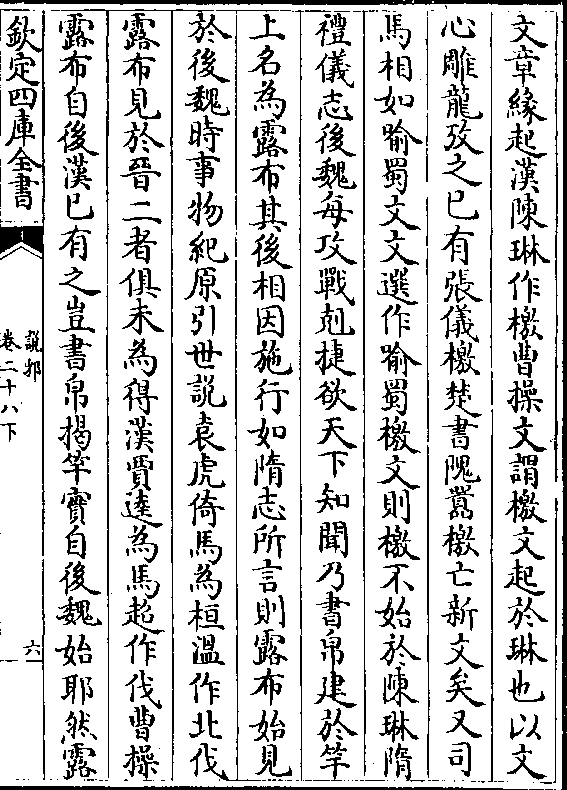 文章緣起漢陳琳作檄曹操文謂檄文起於琳也以文
心雕龍攷之已有張儀檄楚書隗囂檄亡新文矣又司
馬相如喻蜀文文選作喻蜀檄文則檄不始於陳琳隋
禮儀志後魏每攻戰剋捷欲天下知聞乃書帛建於竿
上名為露布其後相因施行如隋志所言則露布始見
於後魏時事物紀原引世說袁虎倚馬為桓溫作北伐
露布見於晉二者俱未為得漢賈逵為馬超作伐曹操
露布自後漢已有之豈書帛揭竿實自後魏始耶然露
欽定四庫全書
說郛
卷二十八下
六